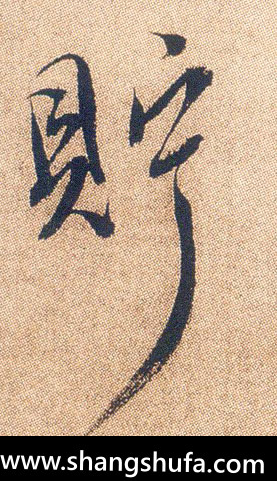 貯
www.shangshufa.com